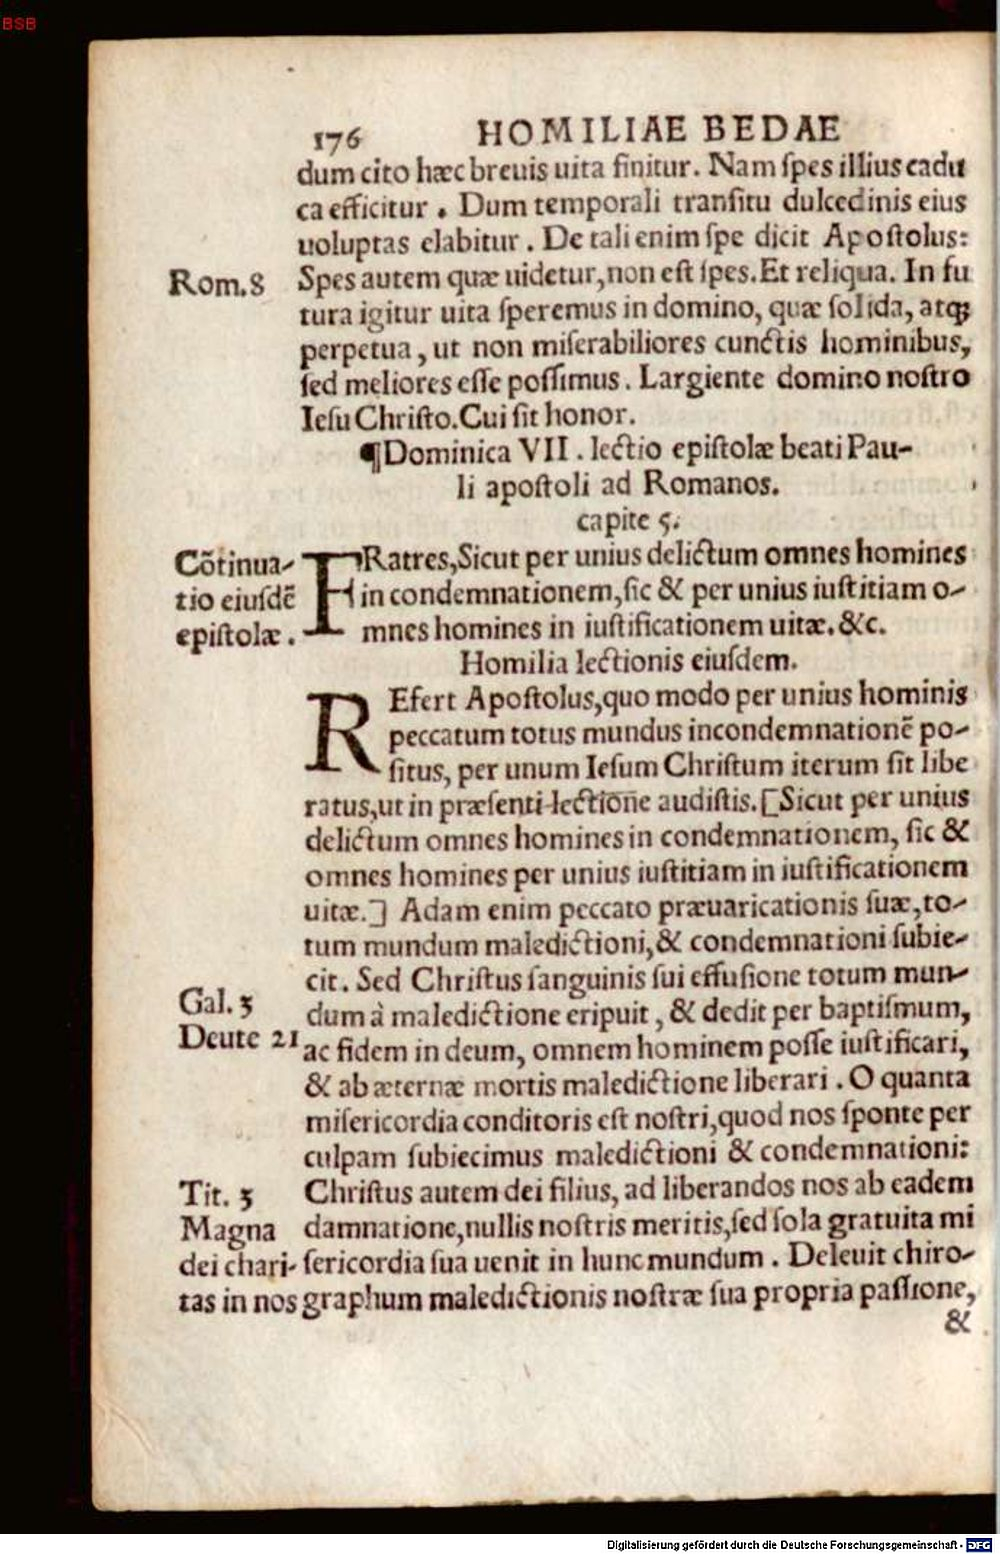 BSB
176 HOMILIAE BEDAE
dum cito hæc breuis uita finitur. Nam ſpes illius cadu
ca efficitur. Dum temporali tranſitu dulcedinis eius
uoluptas elabitur. De tali enim ſpe dicit Apoſtolus:
Rom.8 Spes autem quæ uidetur, non eſt ſpes. Et reliqua. In fu
tura igitur uita ſperemus in domino, quæ ſolida, atqꝫ
perpetua, ut non miſerabiliores cunctis hominibus,
ſed meliores eſſe poſſimus. Largiente domino noſtro
Ieſu Chriſto. Cui ſit honor.
¶Dominica VII. lectio epiſtolæ beati Pau-
li apoſtoli ad Romanos.
capite 5.
Cõtinua-
tio eiuſdẽ
epiſtolæ.
FRatres, Sicut per unius delictum omnes homines
in condemnationem, ſic & per unius iuſtitiam o-
mnes homines in iuſtificationem uitæ. &c.
Homilia lectionis eiuſdem.
REfert Apoſtolus, quo modo per unius hominis
peccatum totus mundus incondemnationẽ po-
ſitus, per unum Ieſum Chriſtum iterum ſit libe
ratus, ut in præſenti lectione audiſtis. [Sicut per unius
delictum omnes homines in condemnationem, ſic &
omnes homines per unius iuſtitiam in iuſtificationem
uitæ.] Adam enim peccato præuaricationis ſuæ, to-
tum mundum maledictioni, & condemnationi ſubie-
cit. Sed Chriſtus ſanguinis ſui effuſione totum mun-
Gal. 3 dum à maledictione eripuit, & dedit per baptiſmum,
Deute 21 ac fidem in deum, omnem hominem poſſe iuſtificari,
& ab æternæ mortis maledictione liberari. O quanta
miſericordia conditoris eſt noſtri, quod nos ſponte per
culpam ſubiecimus maledictioni & condemnationi:
Tit. 3 Chriſtus autem dei filius, ad liberandos nos ab eadem
Magna damnatione, nullis noſtris meritis, ſed ſola gratuita mi
dei chari- ſericordia ſua uenit in hunc mundum. Deleuit chiro-
tas in nos graphum maledictionis noſtræ ſua propria paſſione,
&
Digitalisierung gefördert durch die Deutsche Forschungsgemeinschaft - DFG